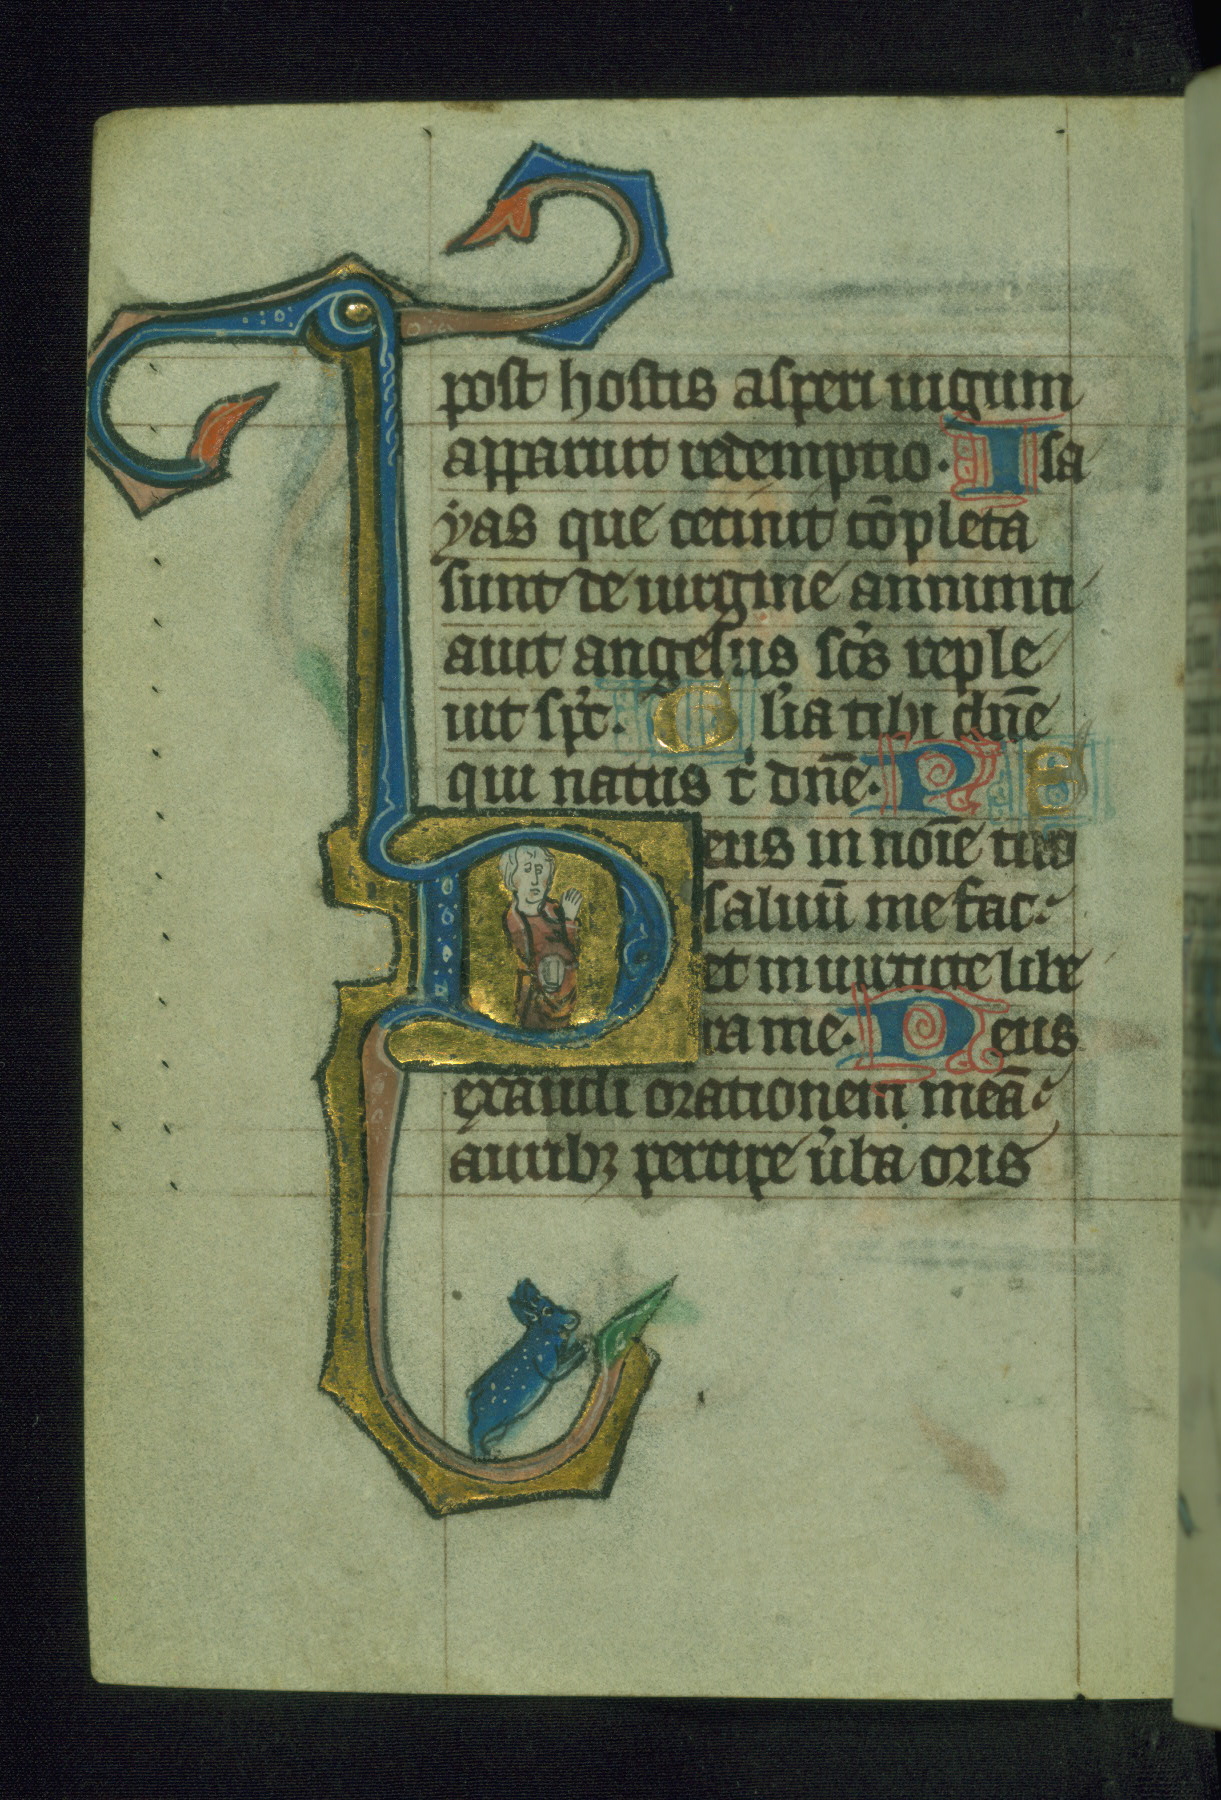 post hostis asperi iugum
apparuit redemptio. Isa
yas que cecinit cōpleta
sunt de uirgine annunti
auit angelus sc̄s reple
uit sp̄c. Gl'ia tibi dn̄e
qui natus ē dn̄e. PS
Deus in noīe tuo
saluū me fac:
et in uirtute libe
ra me. Deus
exaudi orationem meā:
auribꝫ percipe u̓ba oris